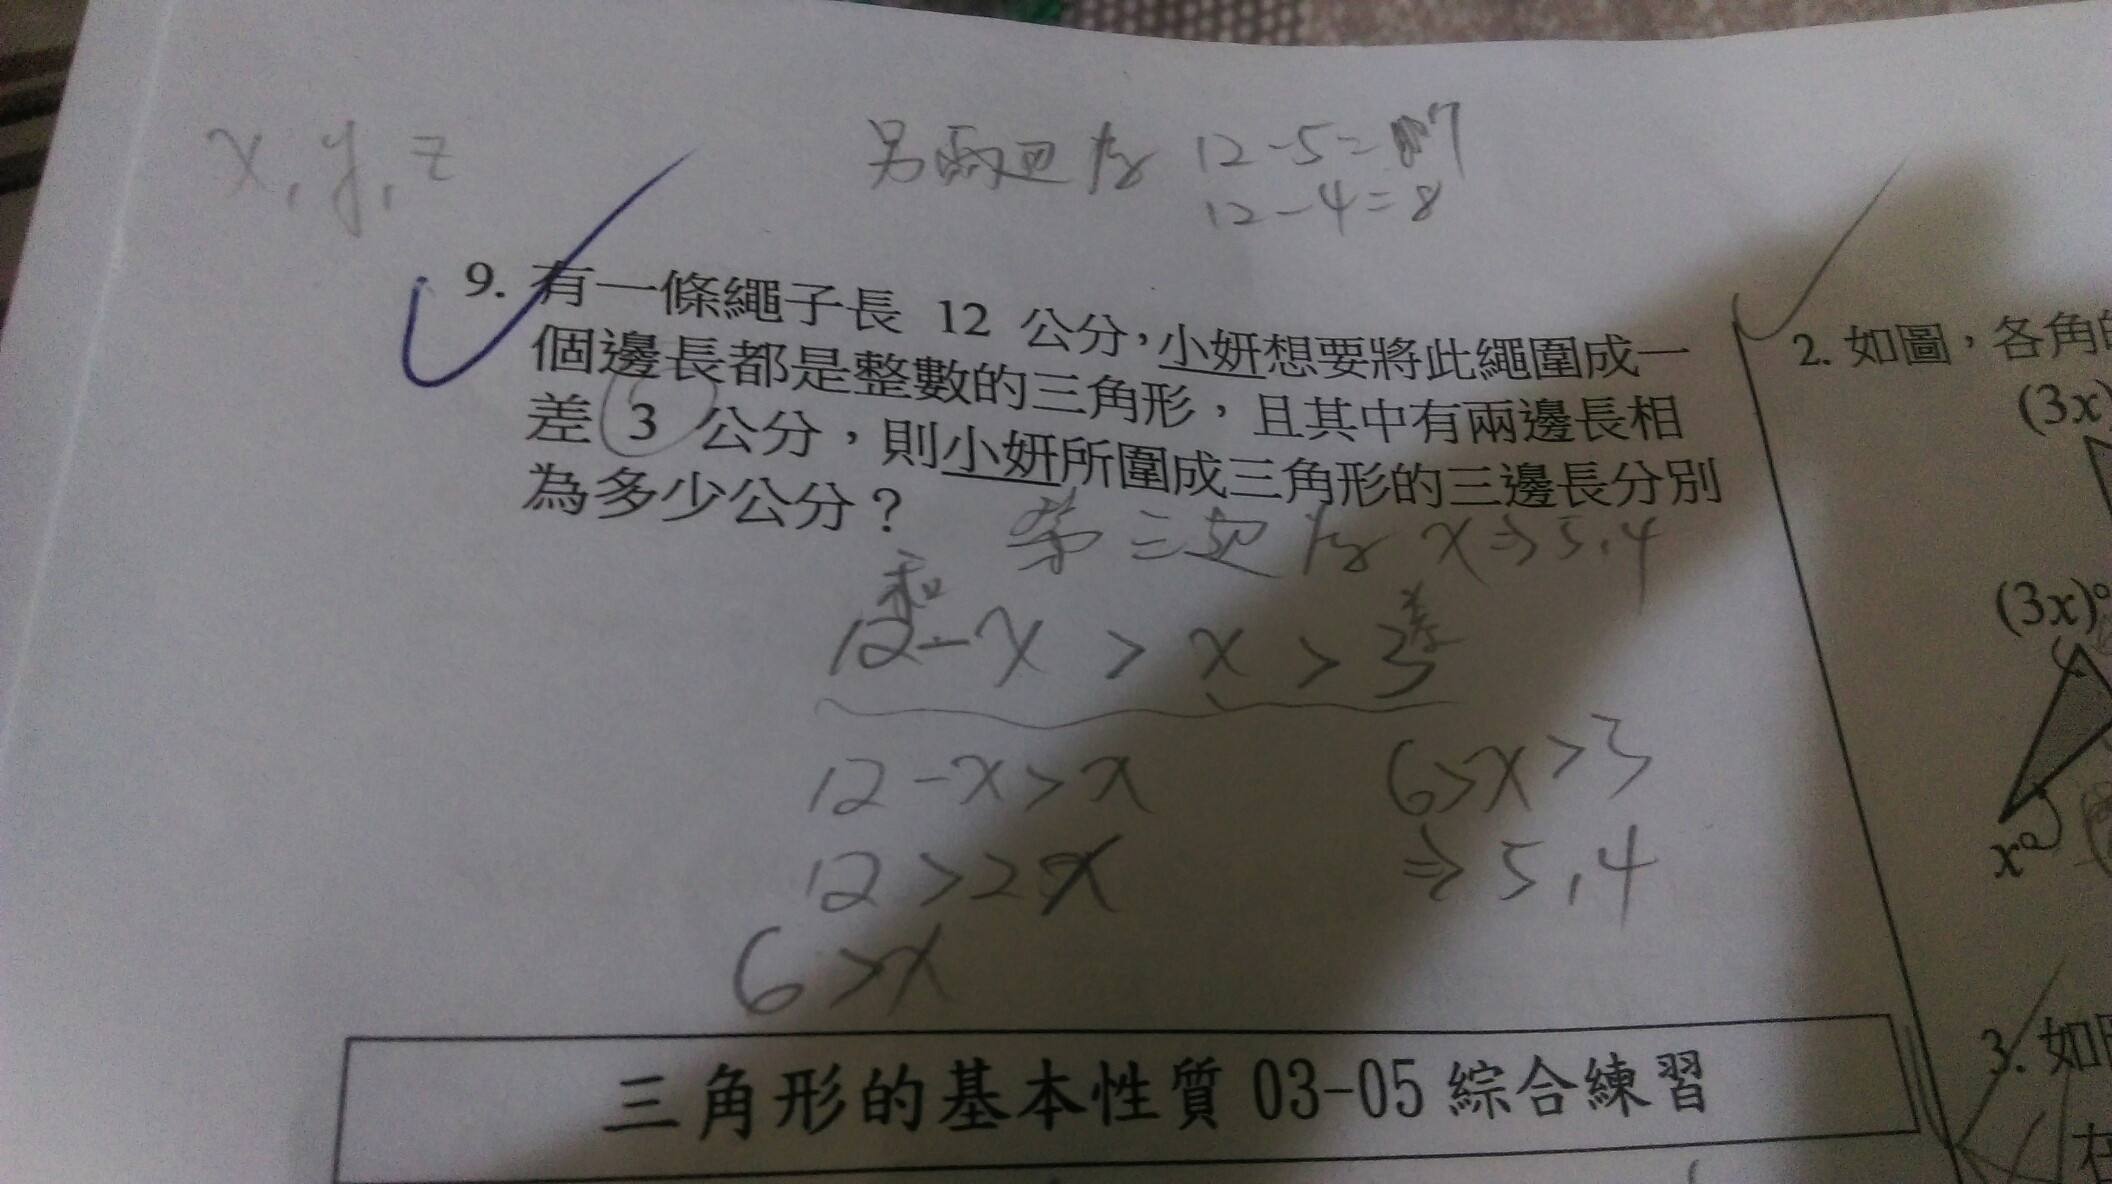 x, y, z
另兩邊為 12-5=7
12-4=8
9. 有一條繩子長 12 公分，小妍想要將此繩圍成一
個邊長都是整數的三角形，且其中有兩邊長相
差 3 公分，則小妍所圍成三角形的三邊長分別
為多少公分？
第三邊為 x⇒5,4
和 差
12-x > x > 3
12-x>x
12>2x
6>x
6>x>3
⇒5,4
三角形的基本性質 03-05 綜合練習
2. 如圖，各角的
(3x)
(3x)°
x°
3. 如圖
在